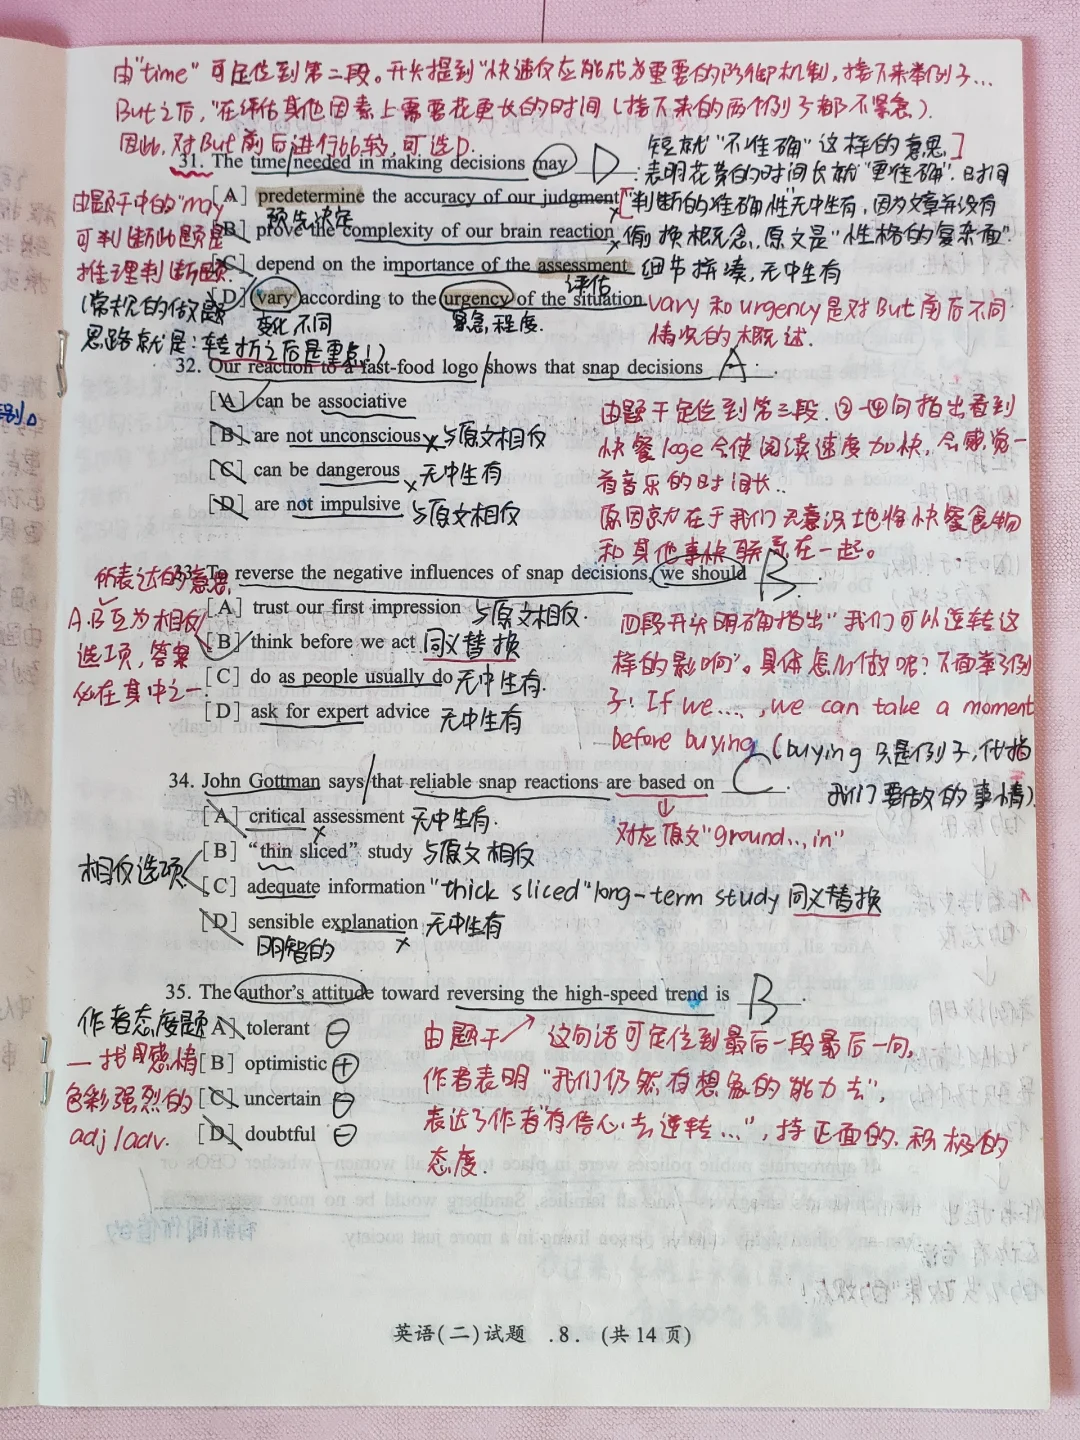 由"time"可定位到第二段。开头提到"快速反应能成为重要的防御机制,接下来举例子...
But之后,"在评估其他因素上需要花更长的时间(接下来的两个例子都不紧急).
因此,对But前后进行比较,可选D.
短就"不准确"这样的意思]
31. The time needed in making decisions may D.
表明花费的时间长就"更准确".时间
[A] predetermine the accuracy of our judgment
[判断的准确性"无中生有,因为文章并没有
预先决定
由题干中的"may
可判断此题是
推理判断题.
(常规的做题
思路就是:转折之后是重点!)
[B] prove the complexity of our brain reaction
偷换概念,原文是"性格的复杂面".
[C] depend on the importance of the assessment 细节拼凑,无中生有
评估
[D] vary according to the urgency of the situation
变化,不同 紧急程度.
vary和urgency是对But前后不同
情况的概述.
32. Our reaction to a fast-food logo shows that snap decisions A.
[A] can be associative
[B] are not unconscious 与原文相反
[C] can be dangerous 无中生有
[D] are not impulsive 与原文相反
由题干定位到第三段.③-④句指出看到
快餐loge会使阅读速度加快,会感觉一
首音乐的时间长..
原因就在于我们无意识地将快餐食物
和其他事快联系在一起。
33. To reverse the negative influences of snap decisions, we should B.
所表达的意思
A.B互为相反
选项,答案
必在其中之一.
[A] trust our first impression 与原文相反.
[B] think before we act 同义替换
[C] do as people usually do 无中生有.
[D] ask for expert advice 无中生有
四段开头明确指出"我们可以逆转这
样的影响"。具体怎么做呢?下面举例
子! If we...., we can take a moment
before buying (buying只是例子,代指
我们要做的事情).
34. John Gottman says that reliable snap reactions are based on C
对应原文"ground...in"
[A] critical assessment 无中生有.
[B] "thin sliced" study 与原文相反
相反选项
[C] adequate information "thick sliced" long-term study 同义替换
[D] sensible explanation 无中生有
明智的
35. The author's attitude toward reversing the high-speed trend is B.
作者态度题
一找感情
色彩强烈的
adj/adv.
[A] tolerant -
[B] optimistic +
[C] uncertain -
[D] doubtful -
由题干 这句话可定位到最后一段最后一句,
作者表明"我们仍然有想象的能力去",
表达了作者"有信心去逆转...",持正面的.积极的
态度.
英语(二)试题 .8. (共14页)